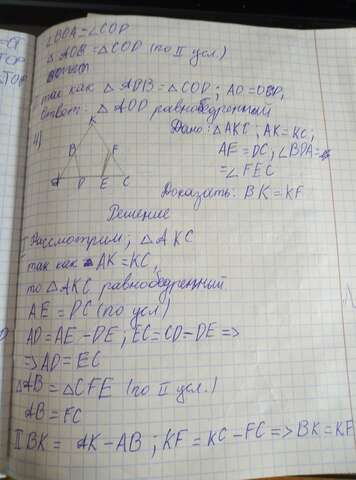 ∠BDA=∠COD
△AOB=△COD (по II усл.)
так как △ADB=△COD; AO=OD,
Ответ: △AOD равнобедренный
K
B F
A D E C
Дано: △AKC; AK=KC;
AE=DC, ∠BDA=
=∠FEC
Доказать: BK=KF
Решение
I Рассмотрим; △AKC
так как AK=KC,
то △AKC равнобедренный.
AE=DC (по усл)
AD=AE-DE; EC=CD-DE=>
=>AD=EC
△AB=△CFE (по II усл.)
AB=FC
II BK= AK-AB; KF=KC-FC=>BK=KF